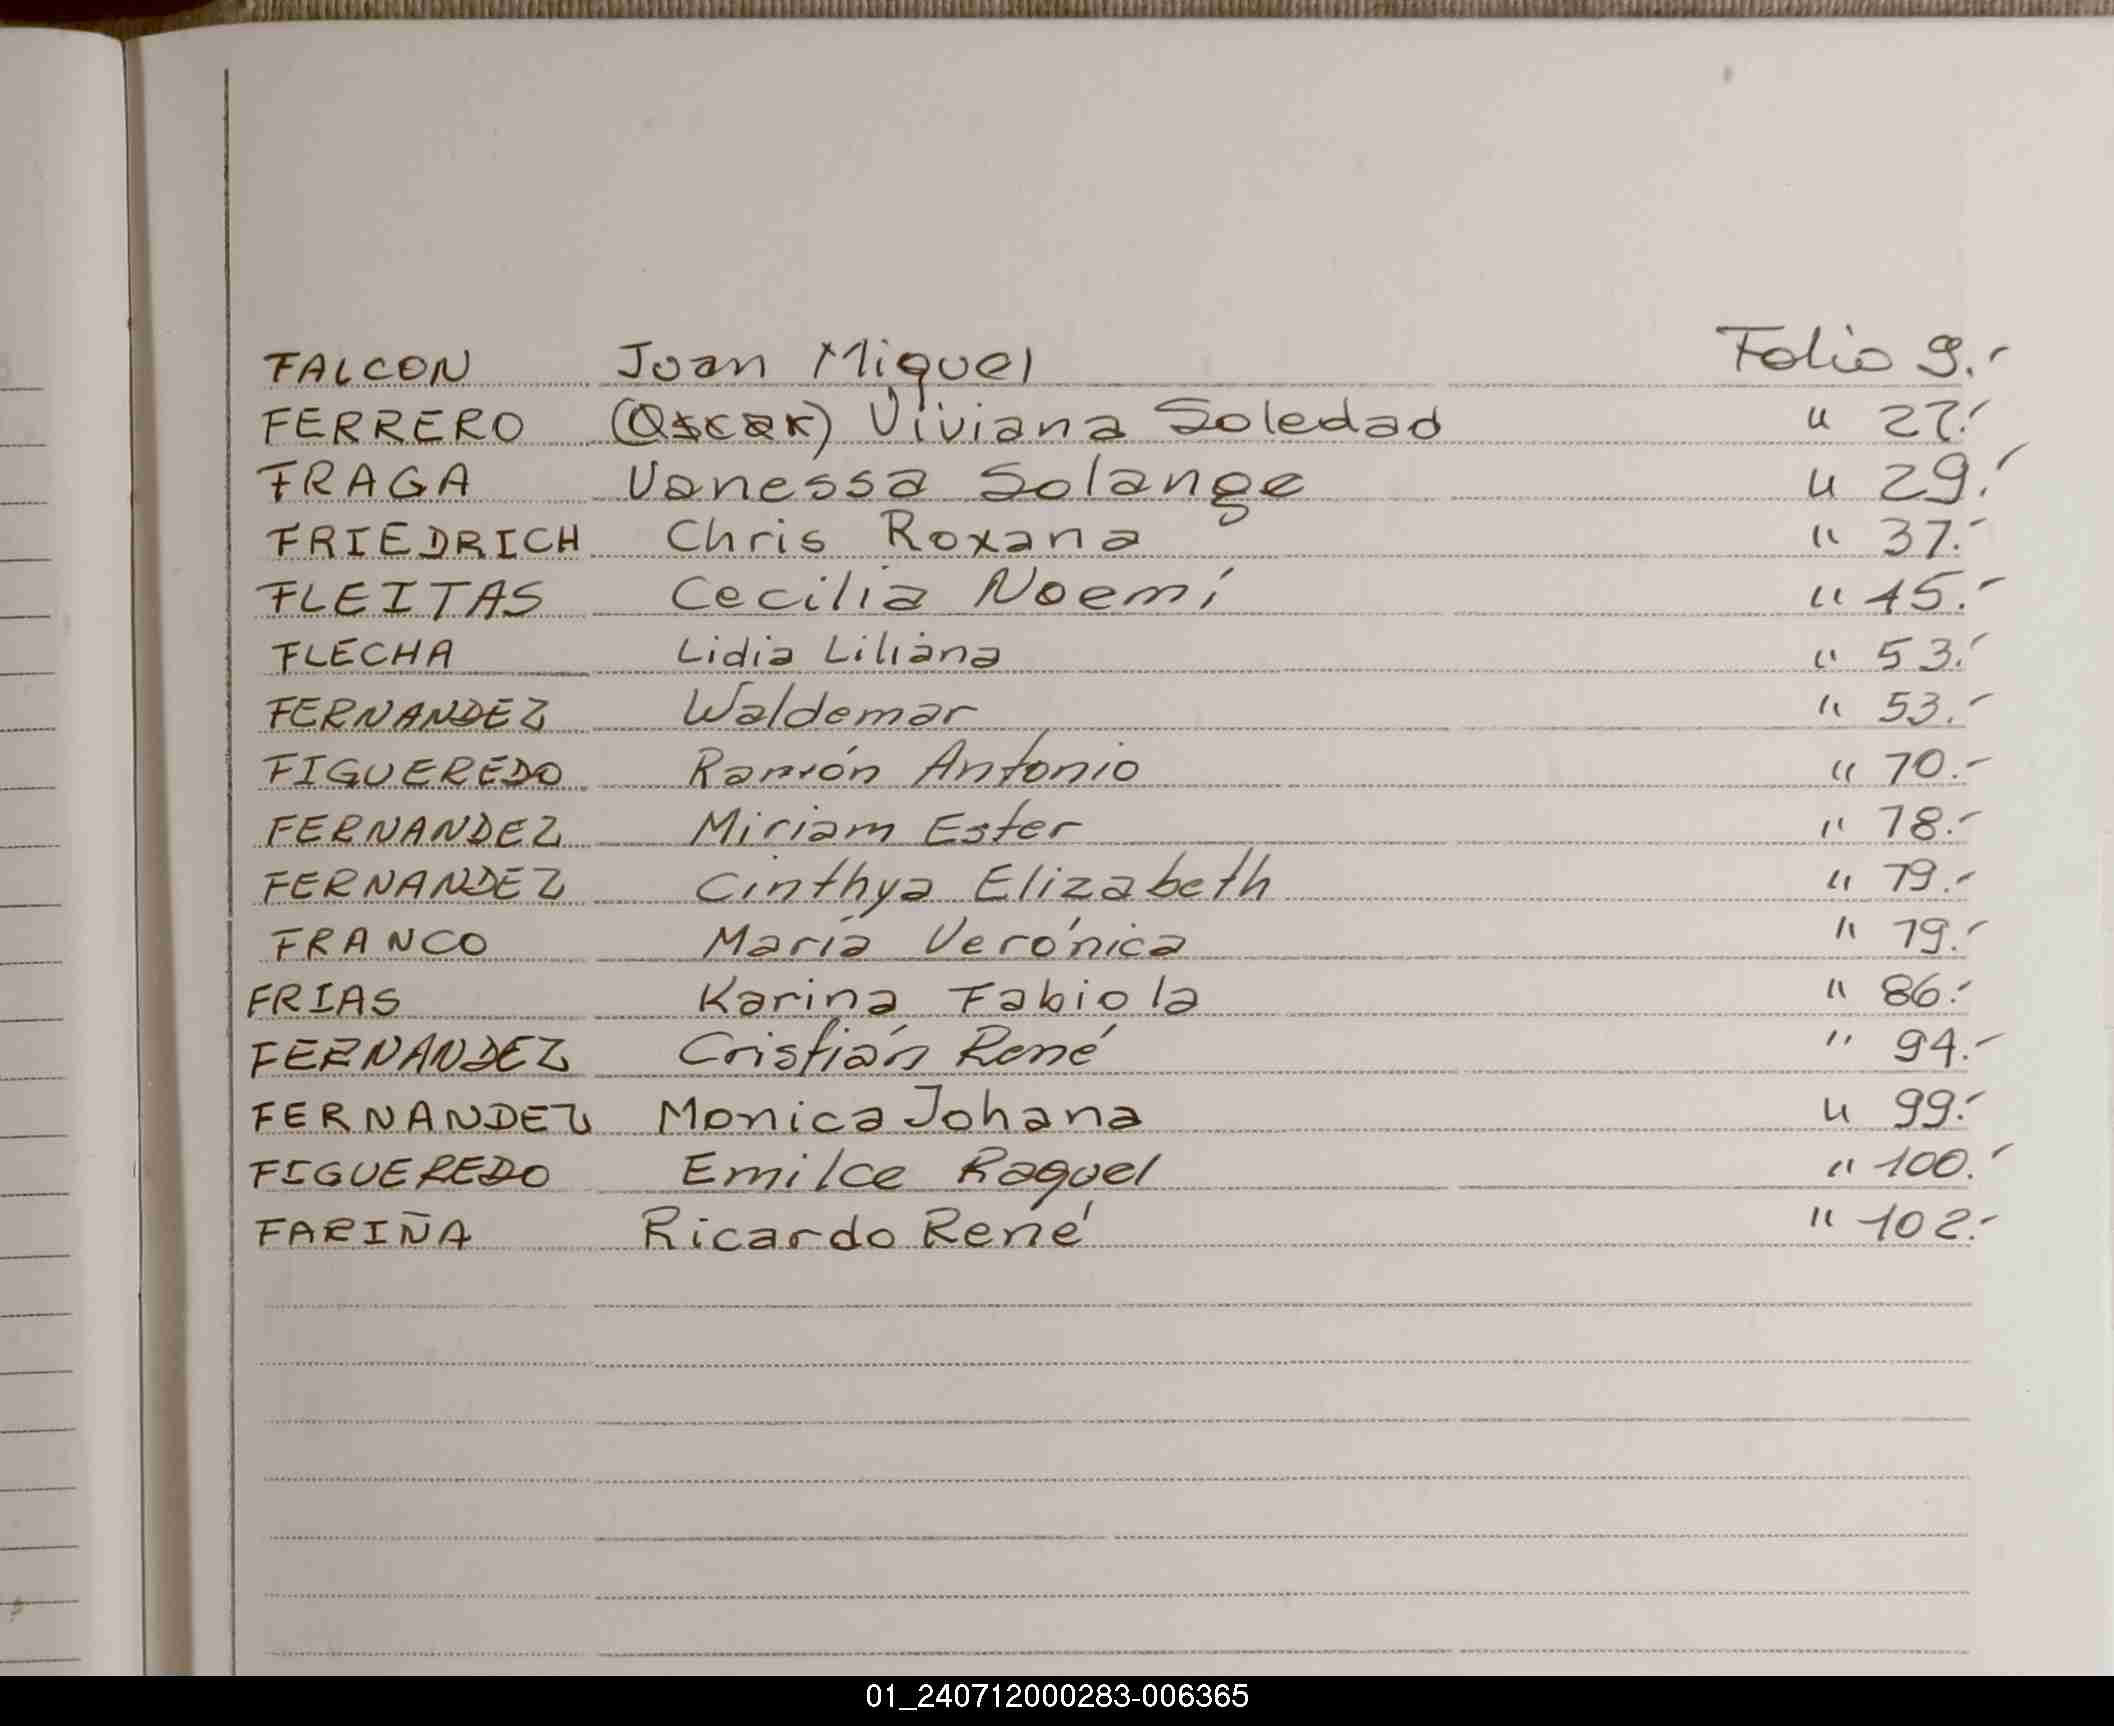 FALCON Juan Miguel Folio 9.-
FERRERO (Oscar) Viviana Soledad " 27.-
FRAGA Vanessa Solange " 29.-
FRIEDRICH Chris Roxana " 37.-
FLEITAS Cecilia Noemí " 45.-
FLECHA Lidia Liliana " 53.-
FERNANDEZ Waldemar " 53.-
FIGUEREDO Ramón Antonio " 70.-
FERNANDEZ Miriam Ester " 78.-
FERNANDEZ Cinthya Elizabeth " 79.-
FRANCO María Verónica " 79.-
FRIAS Karina Fabiola " 86.-
FERNANDEZ Cristián René " 94.-
FERNANDEZ Monica Johana " 99.-
FIGUEREDO Emilce Raquel " 100.-
FARIÑA Ricardo René " 102.-
01_240712000283-006365